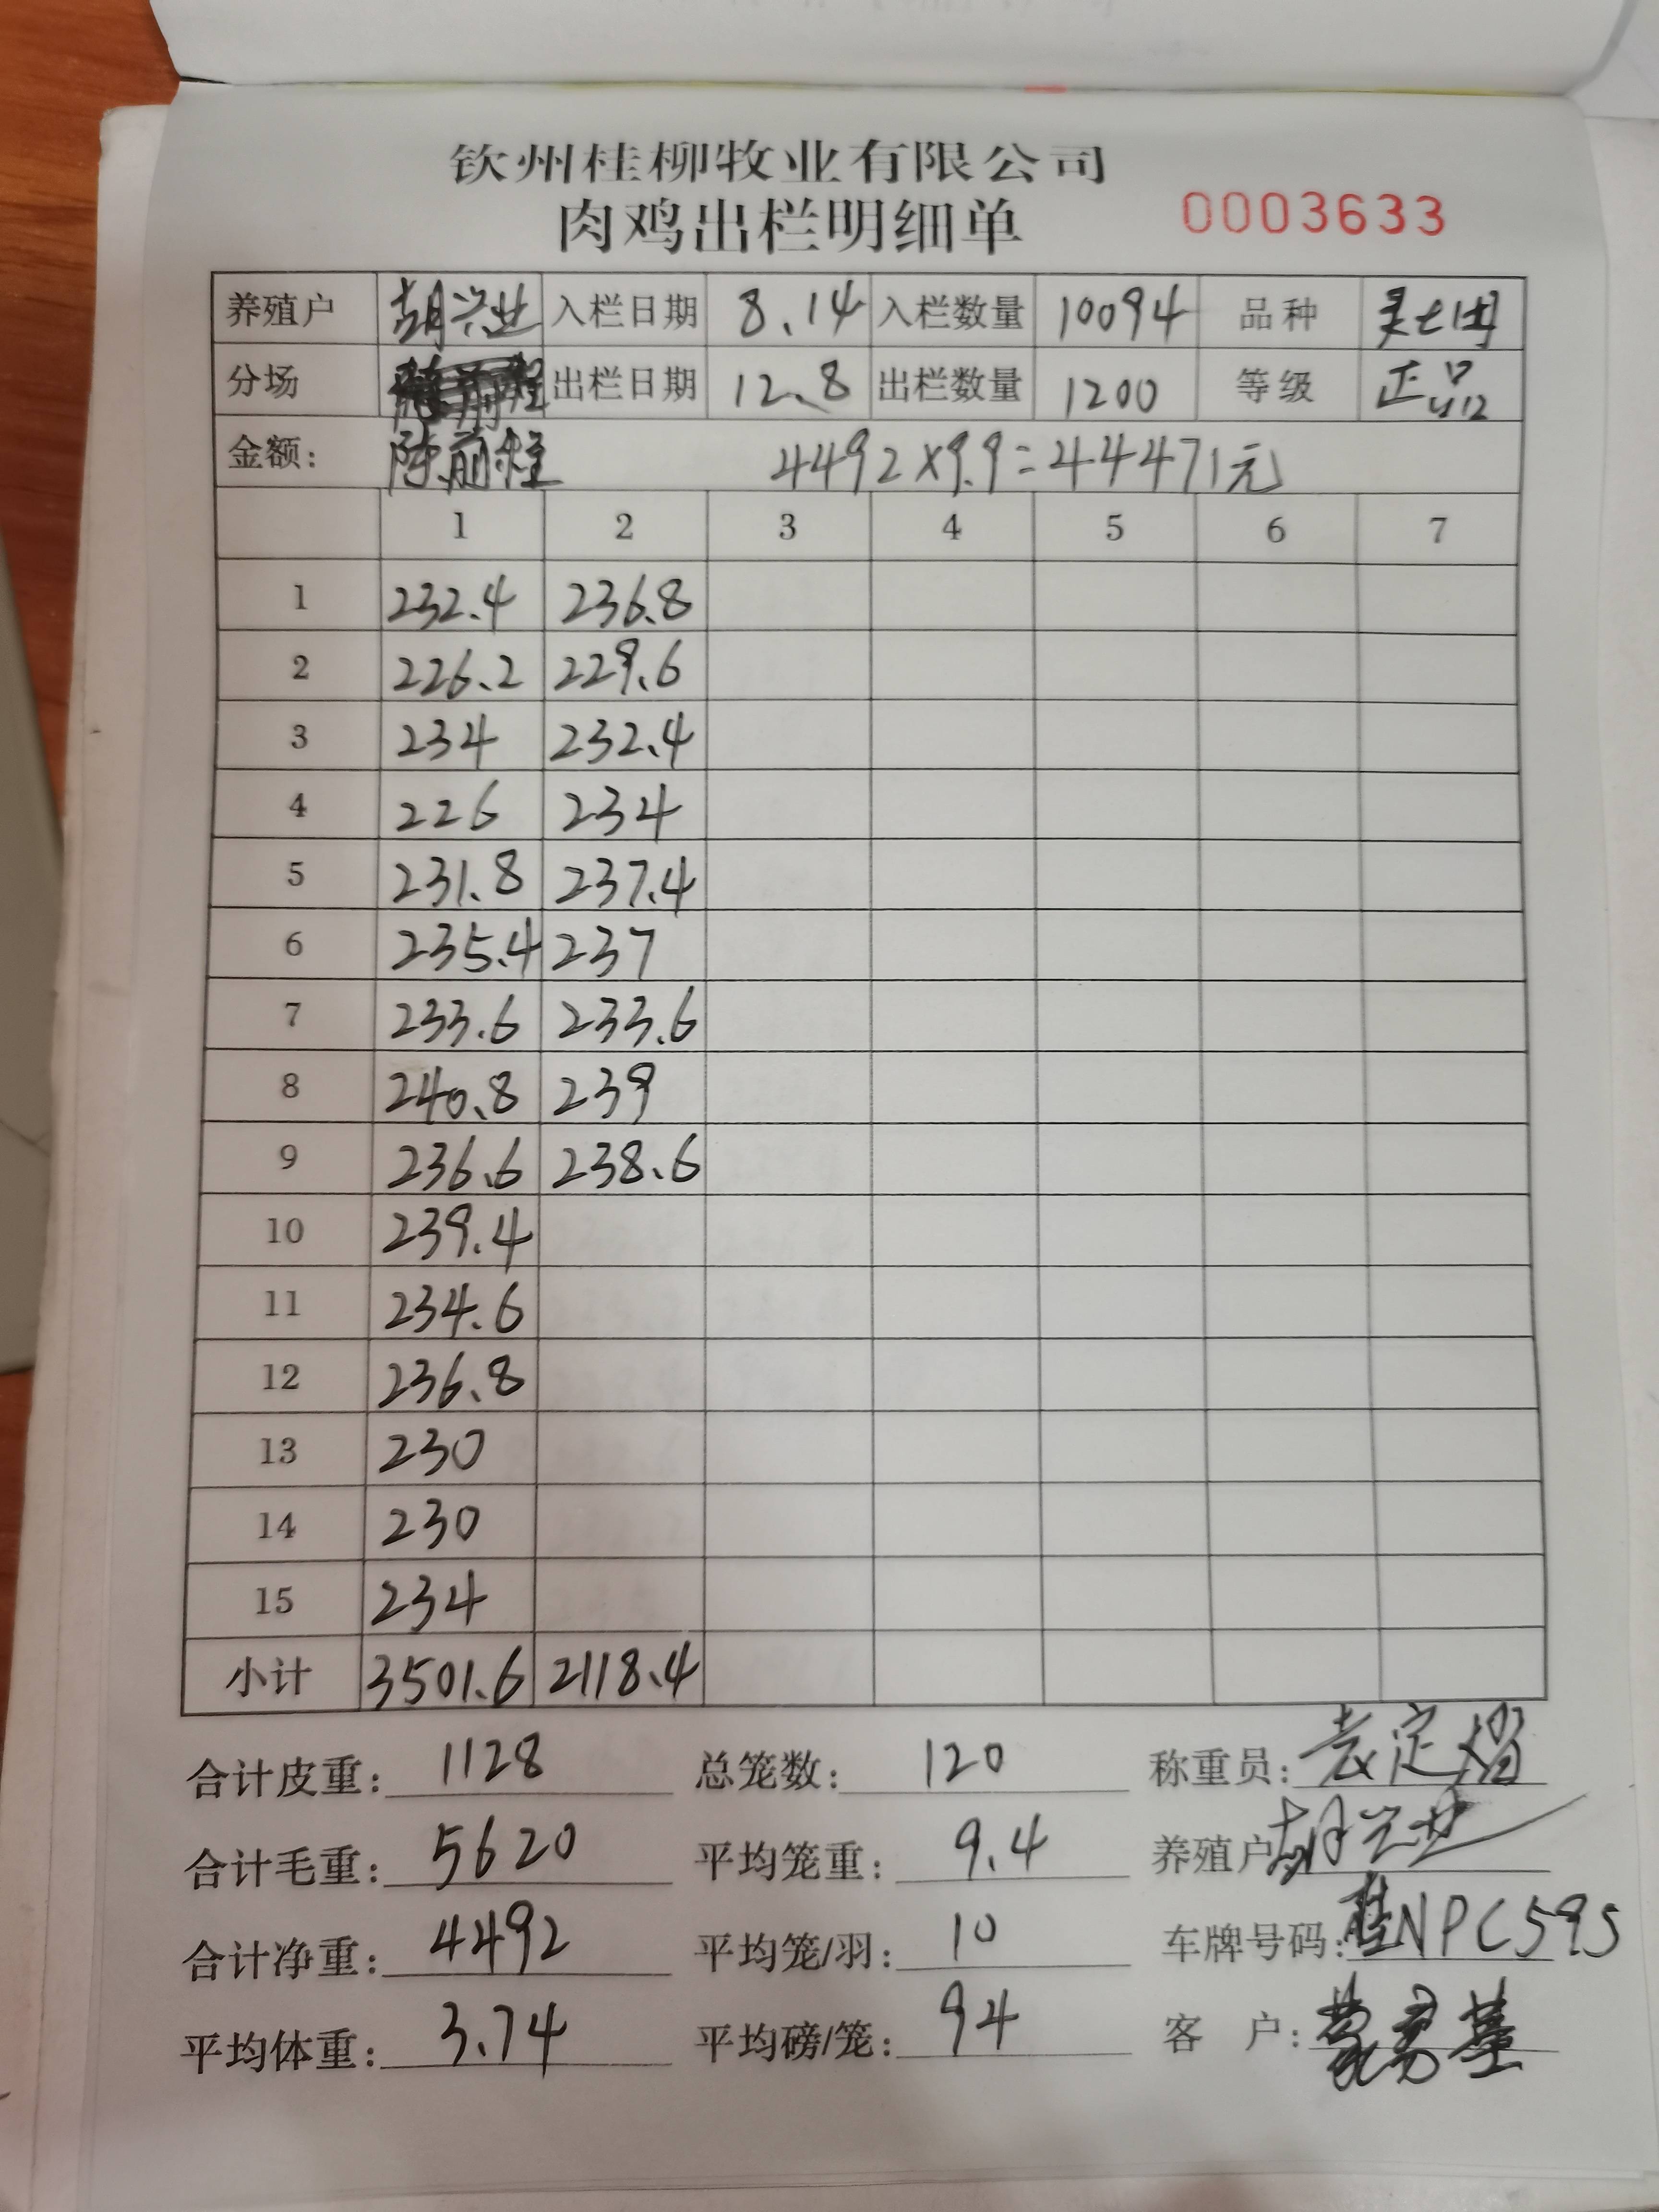 钦州桂柳牧业有限公司
肉鸡出栏明细单 0003633
养殖户 胡兴业 入栏日期 8.14 入栏数量 10094 品种
分场 出栏日期 12.8 出栏数量 1200 等级 正品
金额: 陈前 4492×9.9=44471元
1 2 3 4 5 6 7
1 232.4 236.8
2 226.2 229.6
3 234 232.4
4 226 234
5 231.8 237.4
6 235.4 237
7 233.6 233.6
8 240.8 239
9 236.6 238.6
10 239.4
11 234.6
12 236.8
13 230
14 230
15 234
小计 3501.6 2118.4
合计皮重: 1128 总笼数: 120 称重员: 袁定
合计毛重: 5620 平均笼重: 9.4 养殖户 胡兴业
合计净重: 4492 平均笼/羽: 10 车牌号码: 桂NPC595
平均体重: 3.74 平均磅/笼: 94 客户: